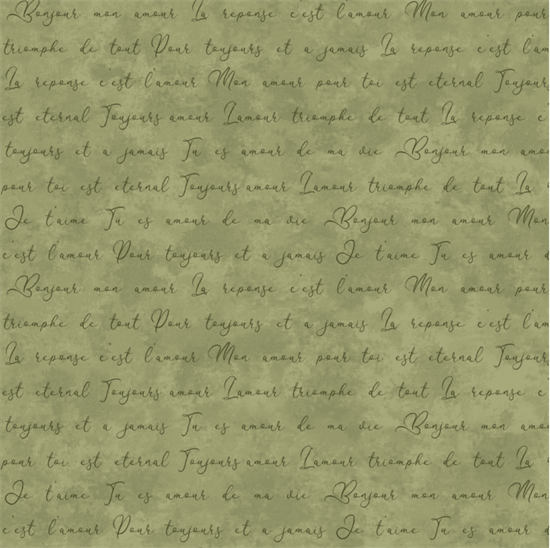 Bonjour mon amour La reponse c'est l'amour Mon amour pour
triomphe de tout Pour toujours et a jamais La reponse c'est l'am
La reponse c'est l'amour Mon amour pour toi est eternal Toujours
est eternal Toujours amour L'amour triomphe de tout La reponse c
toujours et a jamais Tu es amour de ma vie Bonjour mon amo
pour toi est eternal Toujours amour L'amour triomphe de tout La
Je t'aime Tu es amour de ma vie Bonjour mon amour Mon
c'est l'amour Pour toujours et a jamais Je t'aime Tu es amour d
Bonjour mon amour La reponse c'est l'amour Mon amour pour
triomphe de tout Pour toujours et a jamais La reponse c'est l'am
La reponse c'est l'amour Mon amour pour toi est eternal Toujours
est eternal Toujours amour L'amour triomphe de tout La reponse c
toujours et a jamais Tu es amour de ma vie Bonjour mon amo
pour toi est eternal Toujours amour L'amour triomphe de tout La
Je t'aime Tu es amour de ma vie Bonjour mon amour Mon
c'est l'amour Pour toujours et a jamais Je t'aime Tu es amour d